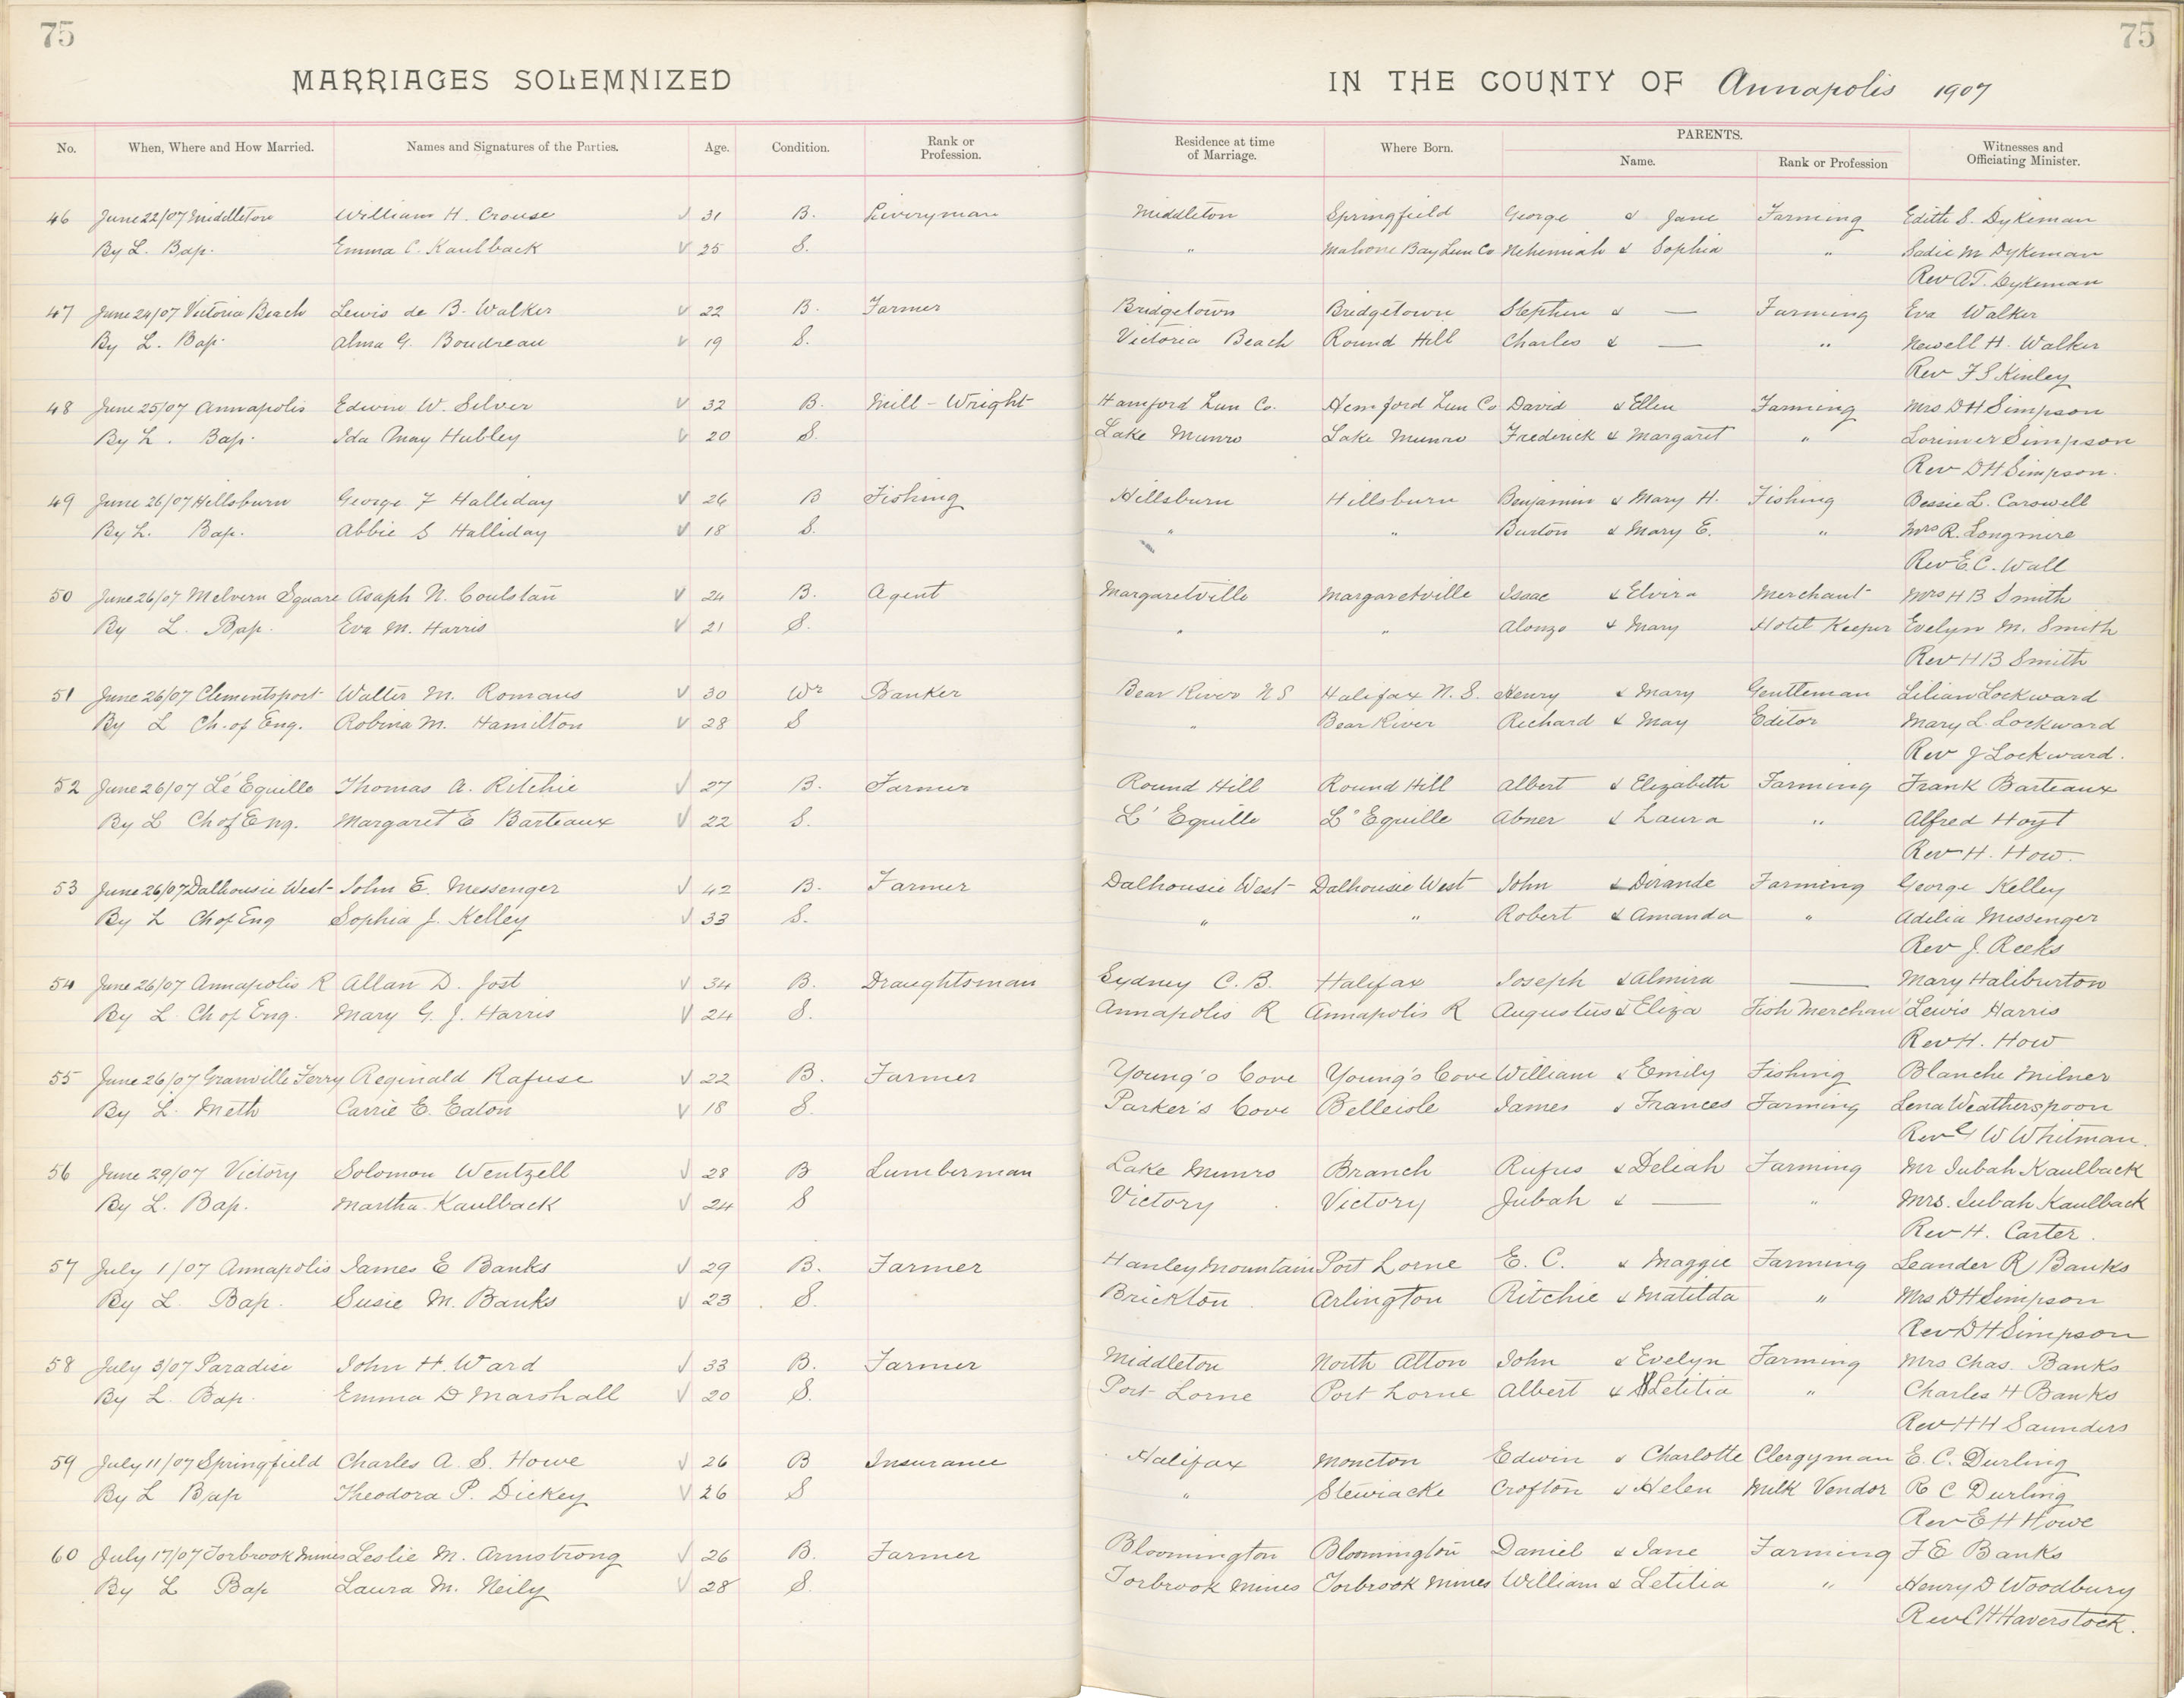 75
75
MARRIAGES SOLEMNIZED IN THE COUNTY OF Annapolis 1907
No. When, Where and How Married. Names and Signatures of the Parties. Age. Condition. Rank or Profession. Residence at time of Marriage. Where Born. PARENTS. Name. Rank or Profession Witnesses and Officiating Minister.
46 June 22/07 Middleton William H. Crouse V 31 B. Liveryman Middleton Springfield George & Jane Farming Edith S. Dykeman
By L. Bap. Emma C. Kaulback V 25 S. " Mahone Bay Lun Co Nehemiah & Sophia " Sadie M Dykeman
Rev A.T. Dykeman
47 June 24/07 Victoria Beach Lewis de B. Walker V 22 B. Farmer Bridgetown Bridgetown Stephen & — Farming Eva Walker
By L. Bap. Alma G. Boudreau V 19 S. Victoria Beach Round Hill Charles & — " Newell H. Walker
Rev F S Kinley
48 June 25/07 Annapolis Edwin W. Silver V 32 B. Mill-Wright Hamford Lun Co. Hemford Lun Co David & Ellen Farming Mrs D H Simpson
By L. Bap. Ida May Hubley V 20 S. Lake Munro Lake Munro Frederick & Margaret " Lorimer Simpson
Rev D H Simpson.
49 June 26/07 Hillsburn George F Halliday V 26 B Fishing Hillsburn Hillsburn Benjamin & Mary H. Fishing Bessie L. Carswell
By L. Bap. Abbie S Halliday V 18 S. " " Burton & Mary E. " Mrs R. Longmire
Rev E. C. Wall
50 June 26/07 Melvern Square Asaph N. Coulstan V 24 B. Agent Margaretville Margaretville Isaac & Elvira Merchant Mrs H B Smith
By L. Bap. Eva M. Harris V 21 S. " " Alonzo & Mary Hotel Keeper Evelyn M. Smith
Rev H B Smith
51 June 26/07 Clementsport Walter M. Romans V 30 Wr Banker Bear River N S Halifax N. S. Henry & Mary Gentleman Lilian Lockward
By L Ch. of Eng. Robina M. Hamilton V 28 S " Bear River Richard & May Editor Mary L. Lockward
Rev J Lockward.
52 June 26/07 Lé Equille Thomas A. Ritchie V 27 B. Farmer Round Hill Round Hill Albert & Elizabeth Farming Frank Barteaux
By L Ch of Eng. Margaret E Barteaux V 22 S. L' Equille L" Equille Abner & Laura " Alfred Hoyt
Rev H. How.
53 June 26/07 Dalhousie West John E. Messenger V 42 B. Farmer Dalhousie West Dalhousie West John & Dirande Farming George Kelley
By L Ch of Eng Sophia J. Kelley V 33 S. " " Robert & Amanda " Adelia Messenger
Rev J. Reeks
54 June 26/07 Annapolis R Allan D. Jost V 34 B. Draughtsman Sydney C. B. Halifax Joseph & Almira — Mary Haliburton
By L Ch of Eng. Mary G. J. Harris V 24 S. Annapolis R Annapolis R Augustus & Eliza Fish Merchant Lewis Harris
Rev H. How
55 June 26/07 Granville Ferry Reginald Rafuse V 22 B. Farmer Young's Cove Young's Cove William & Emily Fishing Blanche Milner
By L. Meth Carrie E. Eaton V 18 S. Parker's Cove Belleisle James & Frances Farming Lena Weatherspoon
Rev G W Whitman.
56 June 29/07 Victory Solomon Wentzell V 28 B Lumberman Lake Munro Branch Rufus & Deliah Farming Mr Jubah Kaulback
By L. Bap. Martha Kaulback V 24 S Victory Victory Jubah & — " Mrs. Jubah Kaulback
Rev H. Carter.
57 July 1/07 Annapolis James E Banks V 29 B. Farmer Hanley Mountain Port Lorne E. C. & Maggie Farming Leander R Banks
By L. Bap. Susie M. Banks V 23 S. Brickton Arlington Ritchie & Matilda " Mrs D H Simpson
Rev D H Simpson
58 July 3/07 Paradise John H. Ward V 33 B. Farmer Middleton North Alton John & Evelyn Farming Mrs Chas. Banks
By L. Bap. Emma D Marshall V 20 S. Port Lorne Port Lorne Albert & Letitia " Charles H Banks
Rev H H Saunders
59 July 11/07 Springfield Charles A. S. Howe V 26 B Insurance Halifax Moncton Edwin & Charlotte Clergyman E. C. Durling
By L Bap Theodora P. Dickey V 26 S " Stewiacke Crofton & Helen Milk Vendor R C Durling
Rev E H Howe
60 July 17/07 Torbrook Mines Leslie M. Armstrong V 26 B. Farmer Bloomington Bloomington Daniel & Jane Farming F E Banks
By L Bap Laura M. Neily V 28 S. Torbrook Mines Torbrook Mines William & Letitia " Henry D Woodbury
Rev C H Haverstock.